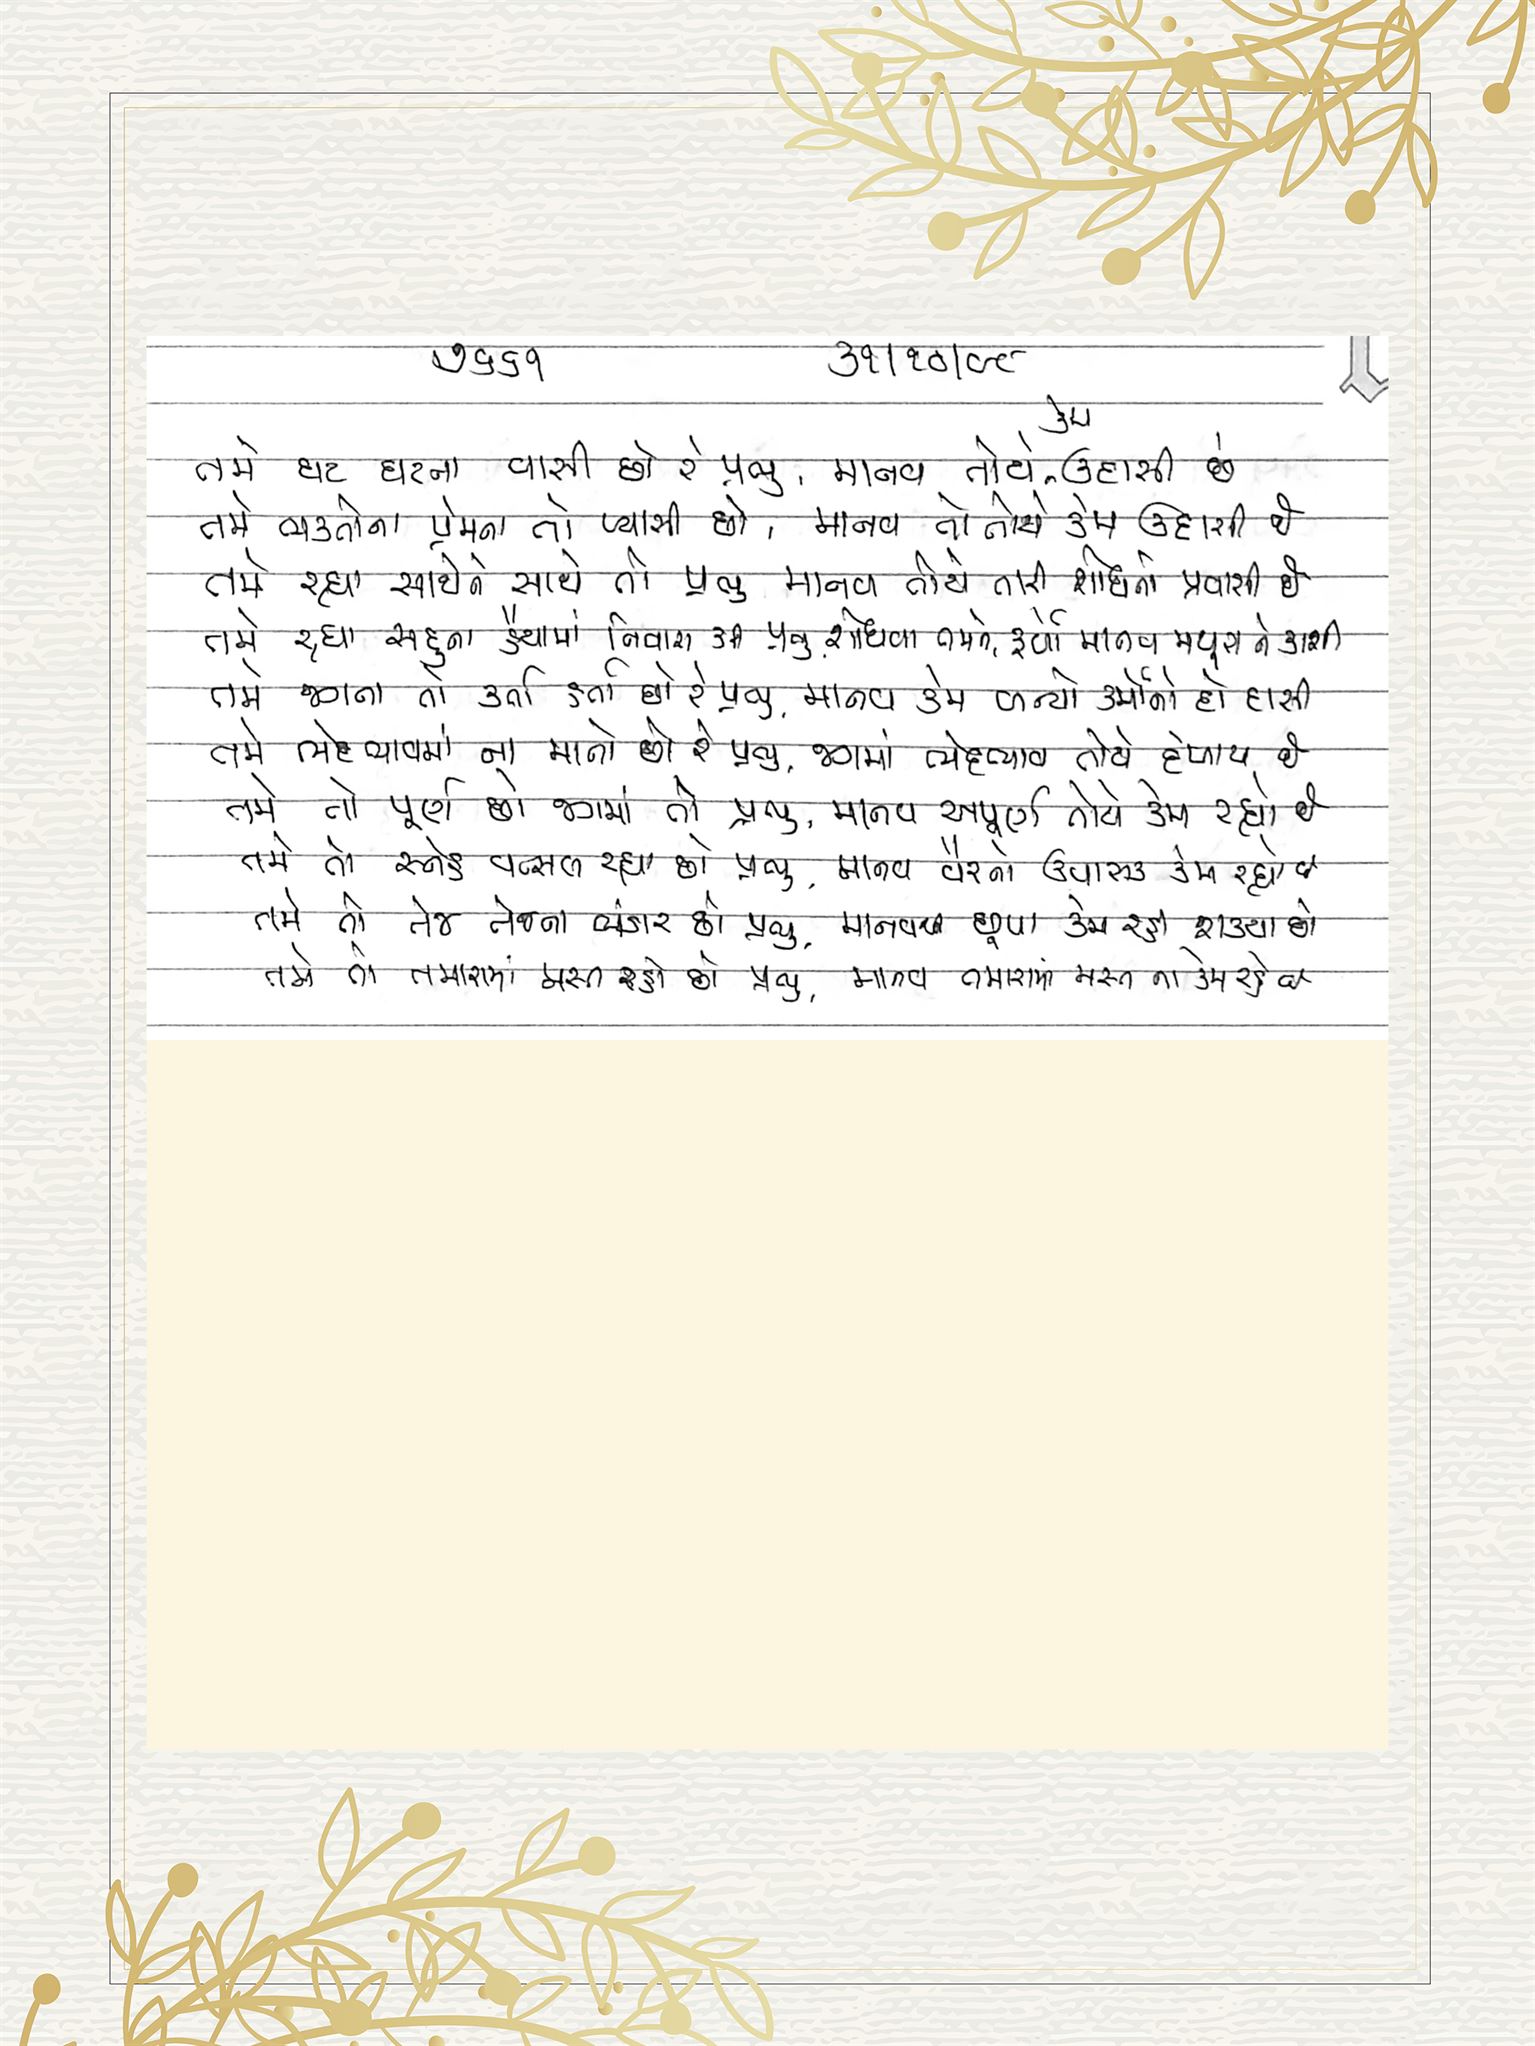 ૭૬૬૧ ૩૧/૧૦/૯૮
કેમ
તમે ઘટ ઘટના વાસી છો રે પ્રભુ, માનવ તોયે ઉદાસી છે
તમે ભક્તોના પ્રેમના તો પ્યાસી છો, માનવ તો તોયે કેમ ઉદાસી છે
તમે રહ્યા સાથેને સાથે તો પ્રભુ માનવ તોયે તારી શોધનો પ્રવાસી છે
તમે રહ્યા સહુના હૈયામાં નિવાસ કરી પ્રભુ શોધવા તમને, ફર્યો માનવ મથુરા ને કાશી
તમે જગના તો કર્તા હર્તા છો રે પ્રભુ, માનવ કેમ બન્યો કર્મોનો તો દાસી
તમે ભેદભાવમાં ના માનો છો રે પ્રભુ, જગમાં ભેદભાવ તોયે દેખાય છે
તમે તો પૂર્ણ છો જગમાં તો પ્રભુ, માનવ અપૂર્ણ તોયે કેમ રહ્યો છે
તમે તો સ્નેહ વત્સલ રહ્યા છો પ્રભુ, માનવ વૈરનો ઉપાસક કેમ રહ્યો છે
તમે તો તેજ તેજના ભંડાર છો પ્રભુ, માનવથી છૂપા કેમ રહી શક્યા છો
તમે તો તમારામાં મસ્ત રહો છો પ્રભુ, માનવ તમારામાં મસ્ત ના કેમ રહે છે